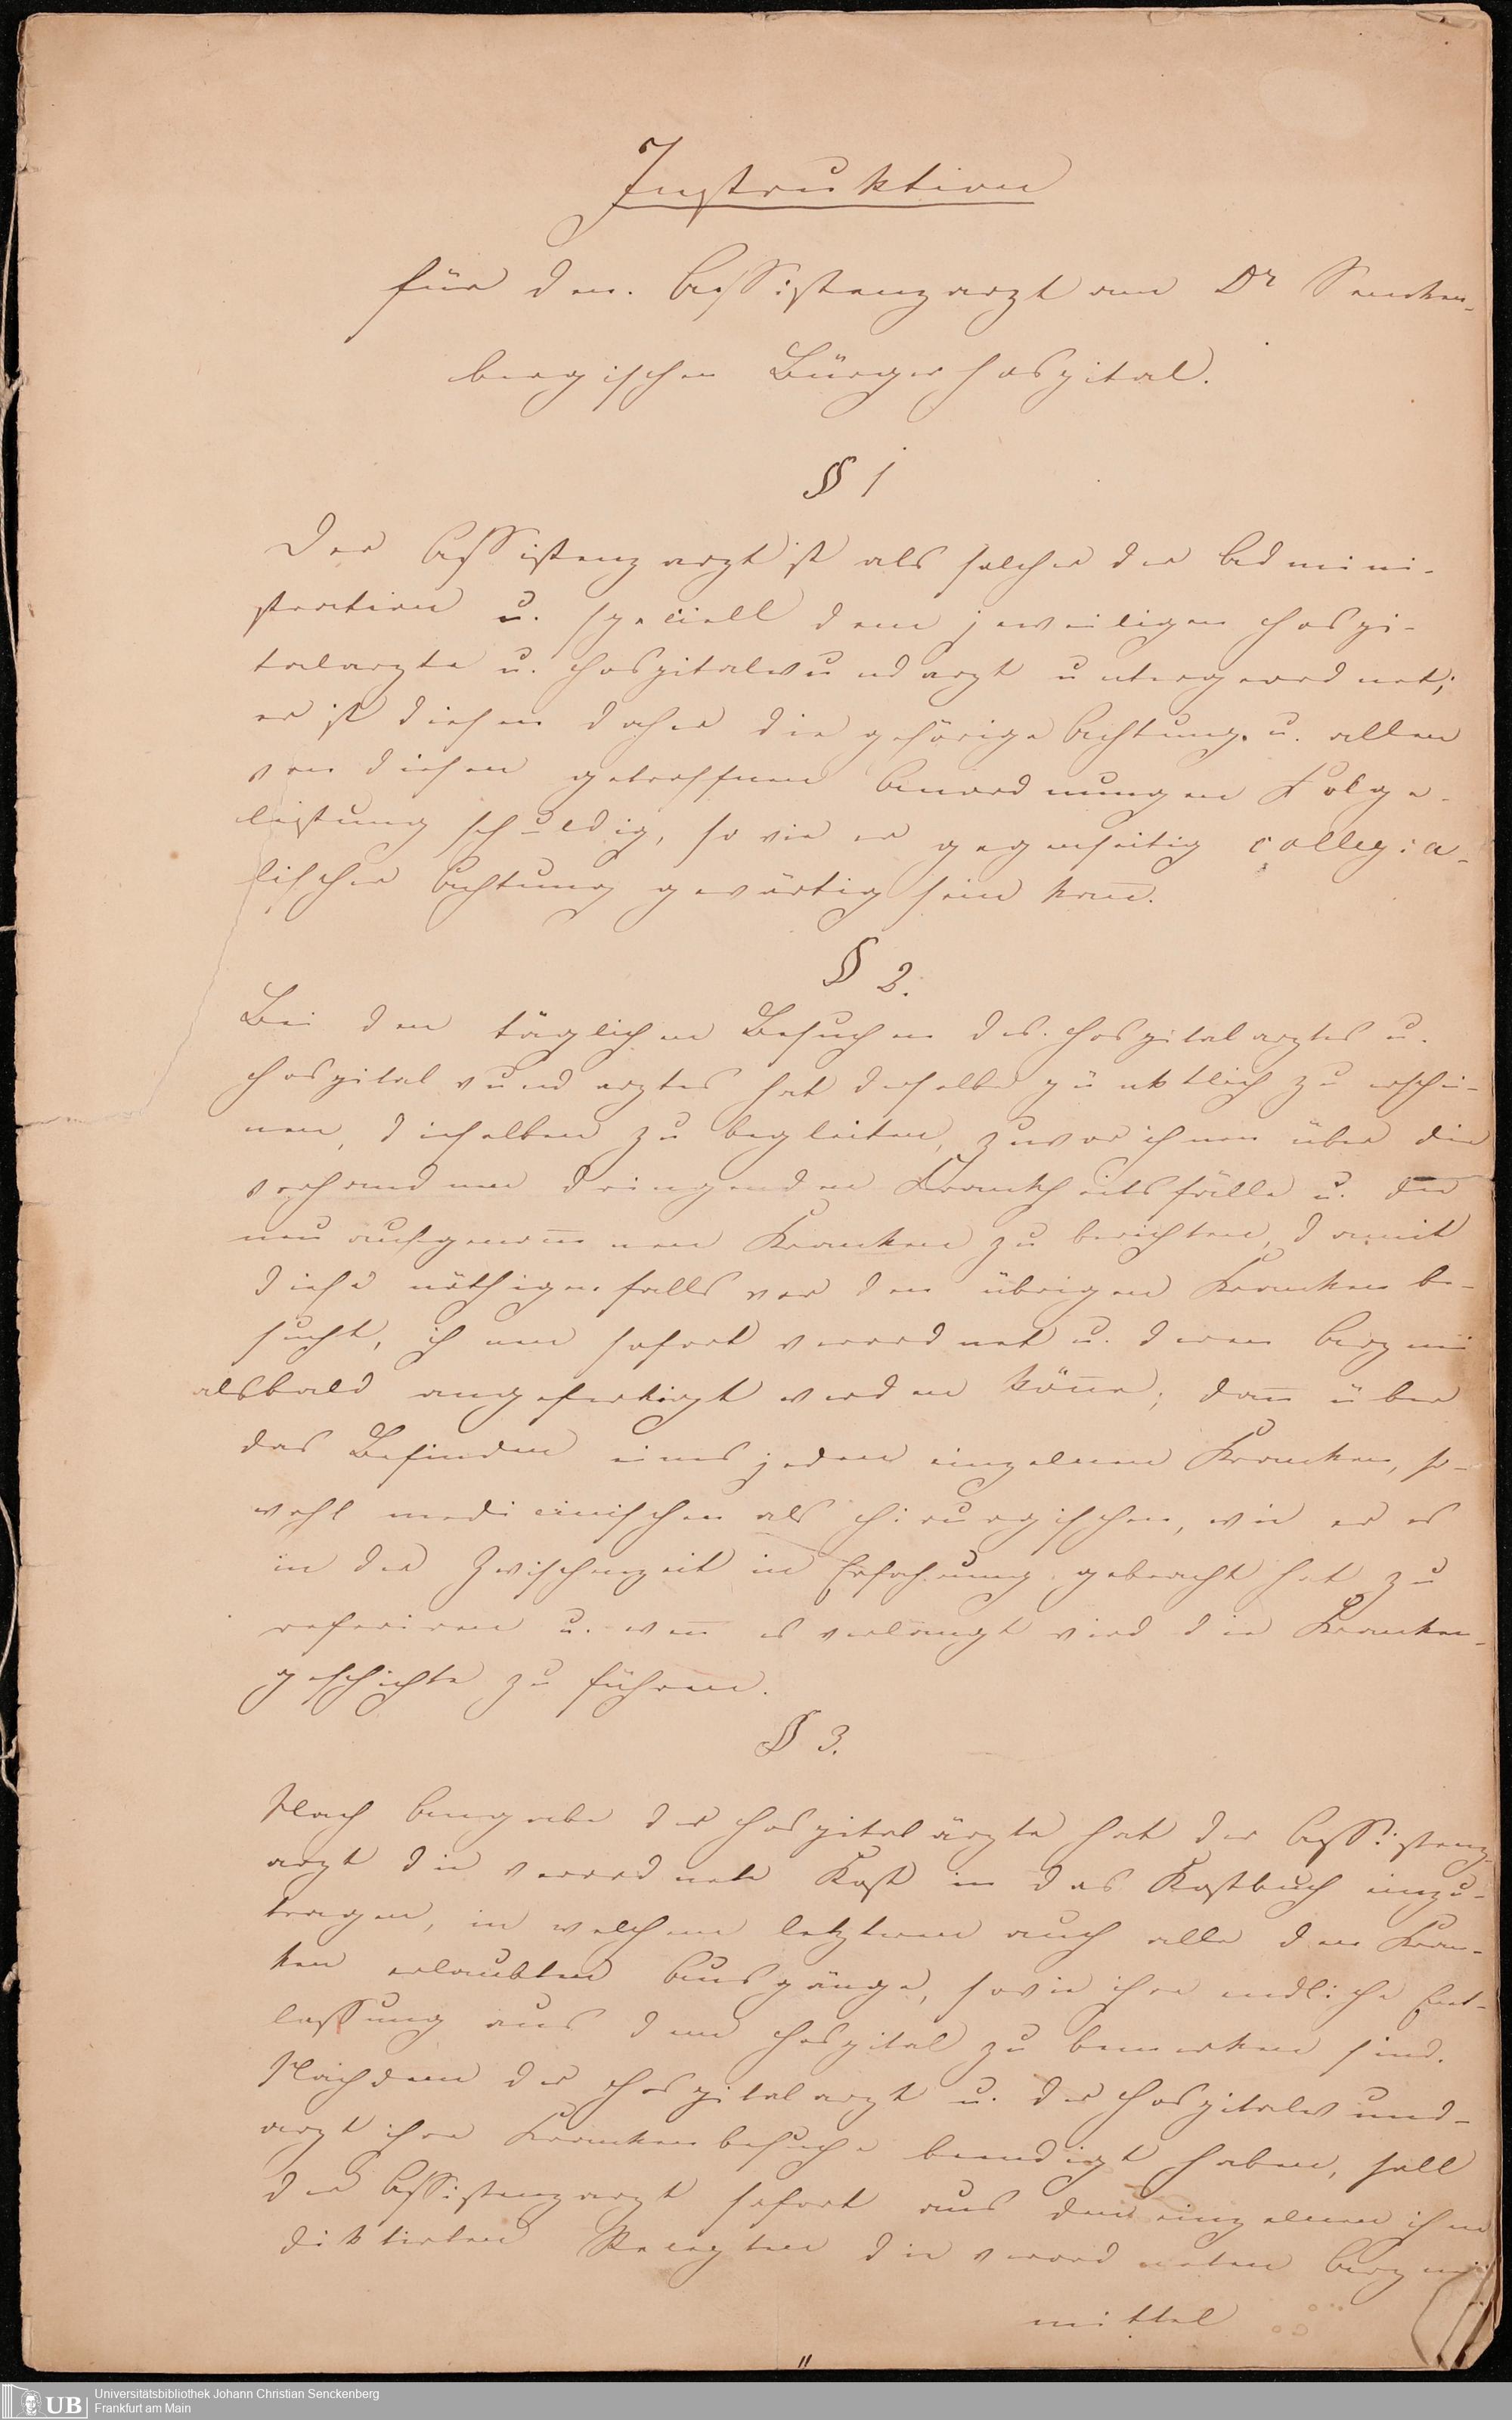 Instruktion
für den Assistenzarzt am Dr Sencken-
bergischen Bürgerhospital.
§ 1
Der Assistenzarzt ist als solcher der Admini-
stration u. speciell dem jeweiligen Hospi-
talarzte u. Hospitalwundarzt untergeordnet;
er ist diesen daher die gehörige Achtung u. allen
von diesen getroffnen Anordnungen Folge-
leistung schuldig, so wie er gegenseitig collegia-
lischer Achtung gewärtig sein kann.
§ 2.
Bei den täglichen Besuchen des Hospitalarztes u.
Hospitalwundarztes hat derselbe pünktlich zu erschei-
nen, dieselben zu begleiten, zuvor ihnen über die
vorhandnen dringenden Krankheitsfälle u. die
neu aufgenom̅nen Kranken zu berichten, damit
diese nöthigenfalls vor den übrigen Kranken be-
sucht, ihnen sofort verordnet u. deren Arznei
alsbald angefertigt werden kön̅e; dan̅ über
das Befinden eines jeden einzelnen Kranken, so-
wohl medicinischen als chirurgischen, wie er es
in der Zwischenzeit in Erfahrung gebracht hat zu
referiren u. wen̅ es verlangt wird die Kranken-
geschichte zu führen.
§ 3.
Nach Angabe der Hospitalärzte hat der Assistenz-
arzt die verordnete Kost in das Kostbuch einzu-
tragen, in welchem letztern auch alle den Kran-
ken erlaubten Ausgänge, sowie ihre endliche Ent-
lassung aus dem Hospital zu bemerken sind.
Nachdem der Hospitalarzt u. der Hospitalwund-
arzt ihre Krankenbesuche beendigt haben, soll
der Assistenzarzt sofort aus den einzelnen ihm
diktirten Recepten die verordneten Arznei
mittel
UB
Universitätsbibliothek Johann Christian Senckenberg
Frankfurt am Main